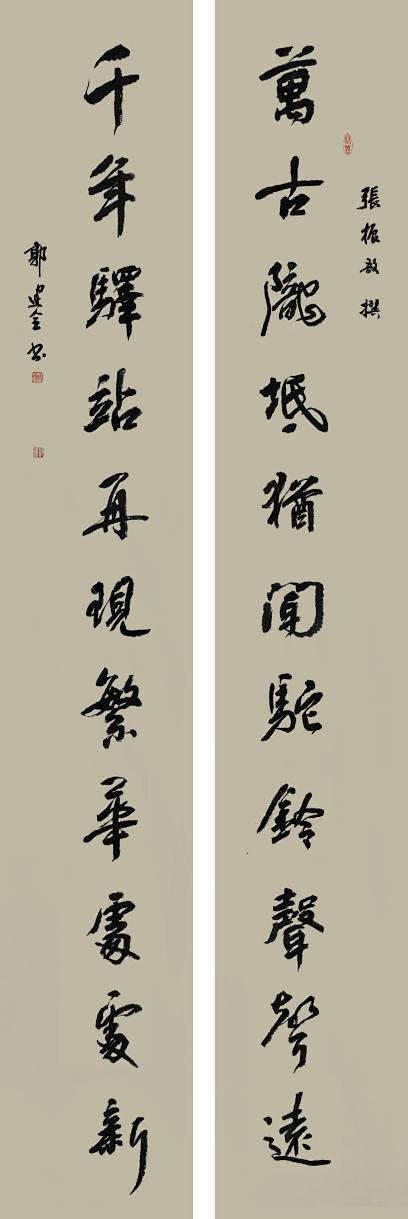 張振敏撰
萬古隴坻猶聞駝鈴聲聲遠
千年驛站再現繁華處處新
郭建全書